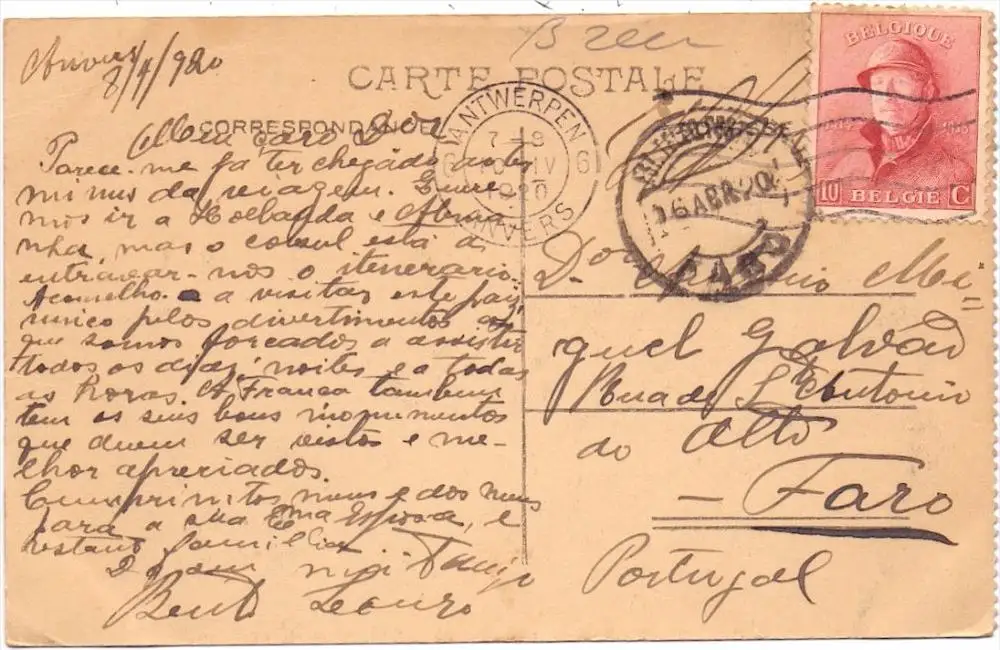 Anvers
8/4/920
CARTE POSTALE
CORRESPONDANCE
Meu caro
Parece-me já ter chegado antes
minus da viagem. Quere
mos ir a Hollanda e Alema
nha, mas o consul está a
entravar-nos o itenerario.
Aconselho-o a visitar este paiz
unico pelos divertimentos a
que somos forçados a assistir
todos os dias, noites e a todas
as horas. A França tambem
tem os seus bons monumentos
que devem ser vistos e me-
lhor apreciados.
Cumprimtos meus e dos meus
para a sua Exma Esposa, e
restante familia
Bento
ANTWERPEN
7-8
6 10 IV 6
1920
ANVERS
16 ABR 20
FARO
BELGIQUE
1914 1918
10 BELGIE C
Dom Antonio Mi=
guel Galvão
Rua de S. Antonio
do Alto
- Faro
Portugal